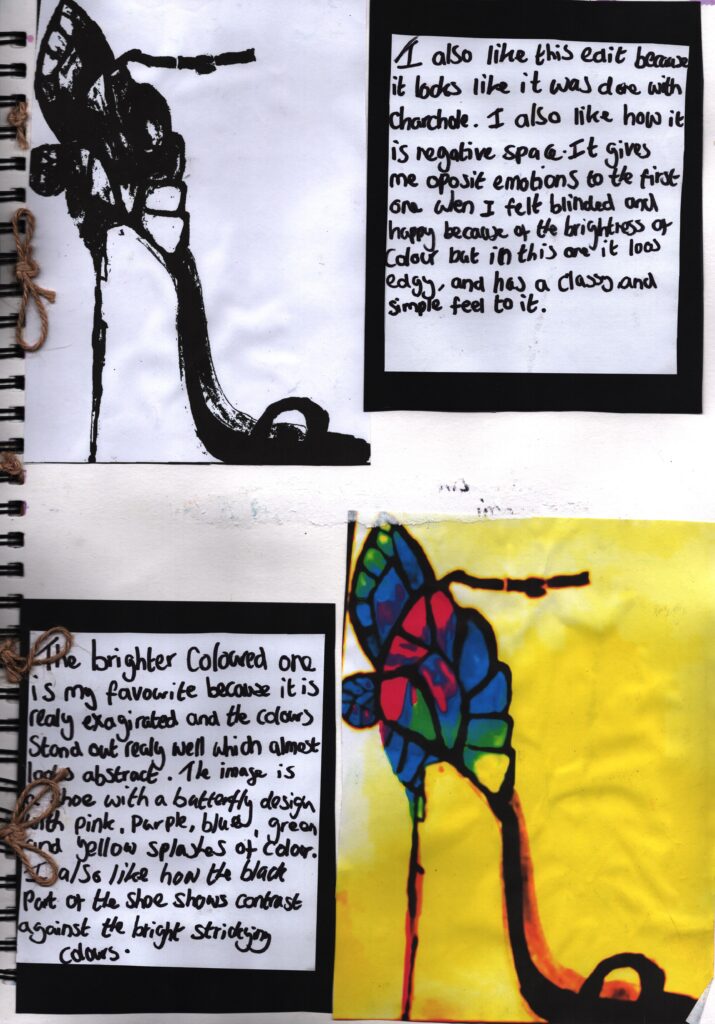 I also like this edit because
it looks like it was done with
Charchole. I also like how it
is negative space. It gives
me oposit emotions to the first
one wen I felt blinded and
happy because of the brightness of
Colour but in this one it loos
edgy, and has a classy and
simple feel to it.
The brighter Coloured one
is my favourite because it is
realy exagirated and the colours
Stand out realy well which almost
looks abstract. The image is
a shoe with a batterfly design
with pink, purple, blues, green
and yellow splashes of color.
I also like how the black
Part of the shoe shows contrast
against the bright
colours.